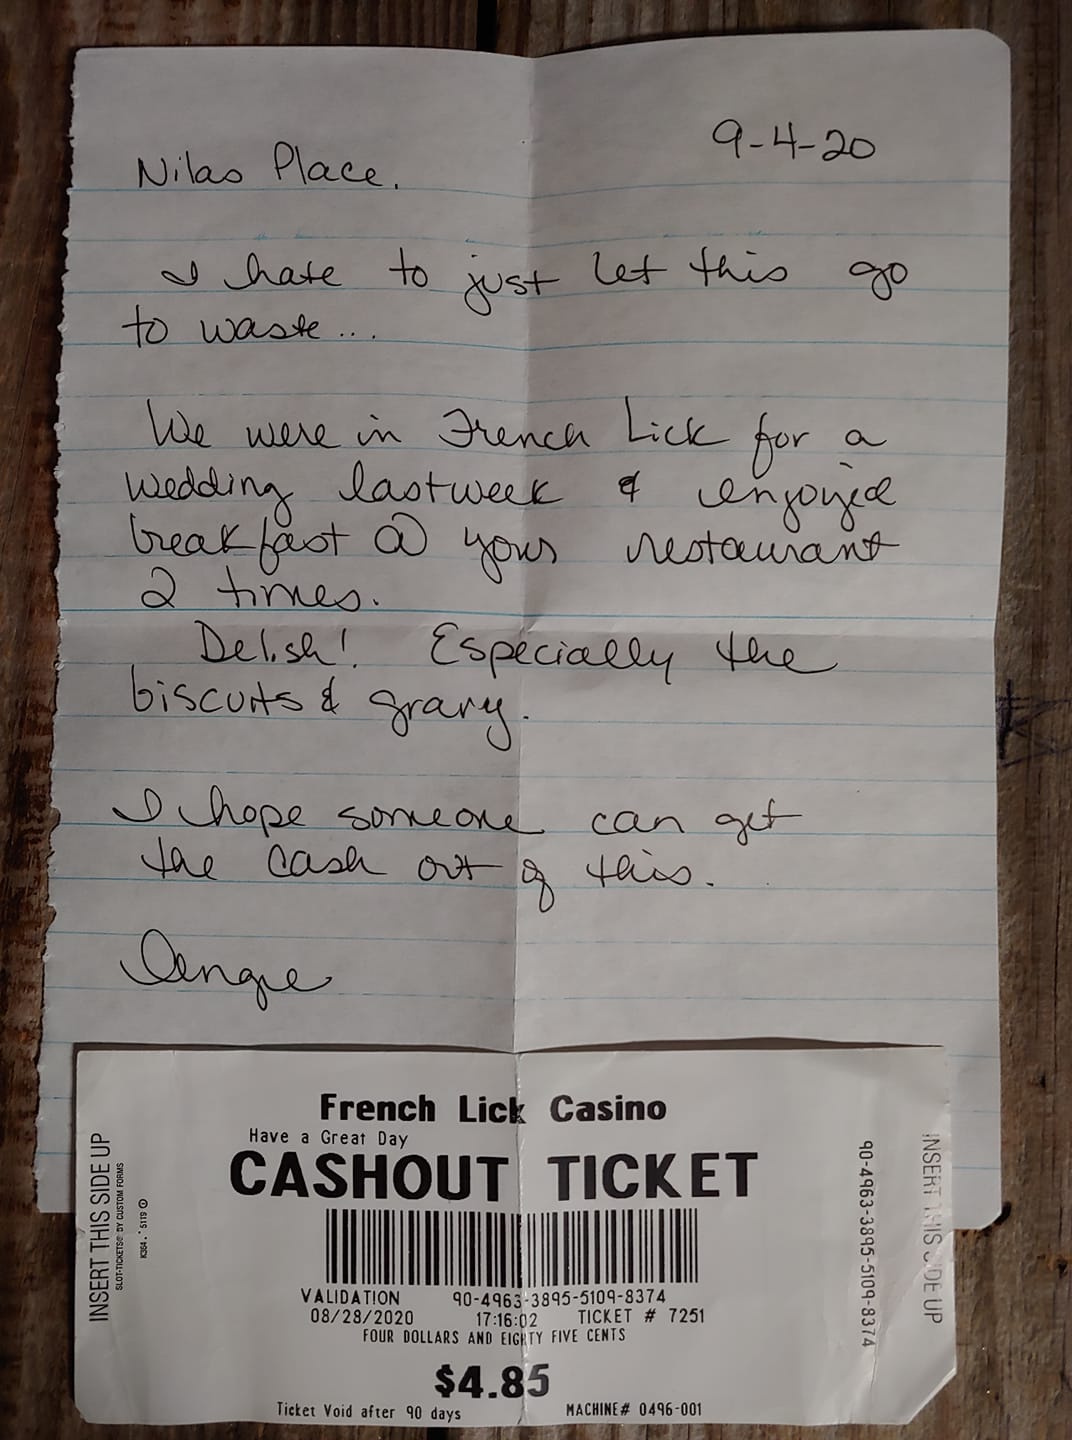 9-4-20
Nilas Place,
I hate to just let this go
to waste...
We were in French Lick for a
wedding last week & enjoyed
breakfast @ your restaurant
2 times.
Delish! Especially the
biscuits & gravy.
I hope someone can get
the cash out of this.
Angie
French Lick Casino
Have a Great Day
CASHOUT TICKET
VALIDATION 90-4963-3895-5109-8374
08/28/2020 17:16:02 TICKET # 7251
FOUR DOLLARS AND EIGHTY FIVE CENTS
$4.85
Ticket Void after 90 days MACHINE# 0496-001
INSERT THIS SIDE UP
SLOT-TICKETS® BY CUSTOM FORMS
90-4963-3895-5109-8374
INSERT THIS SIDE UP